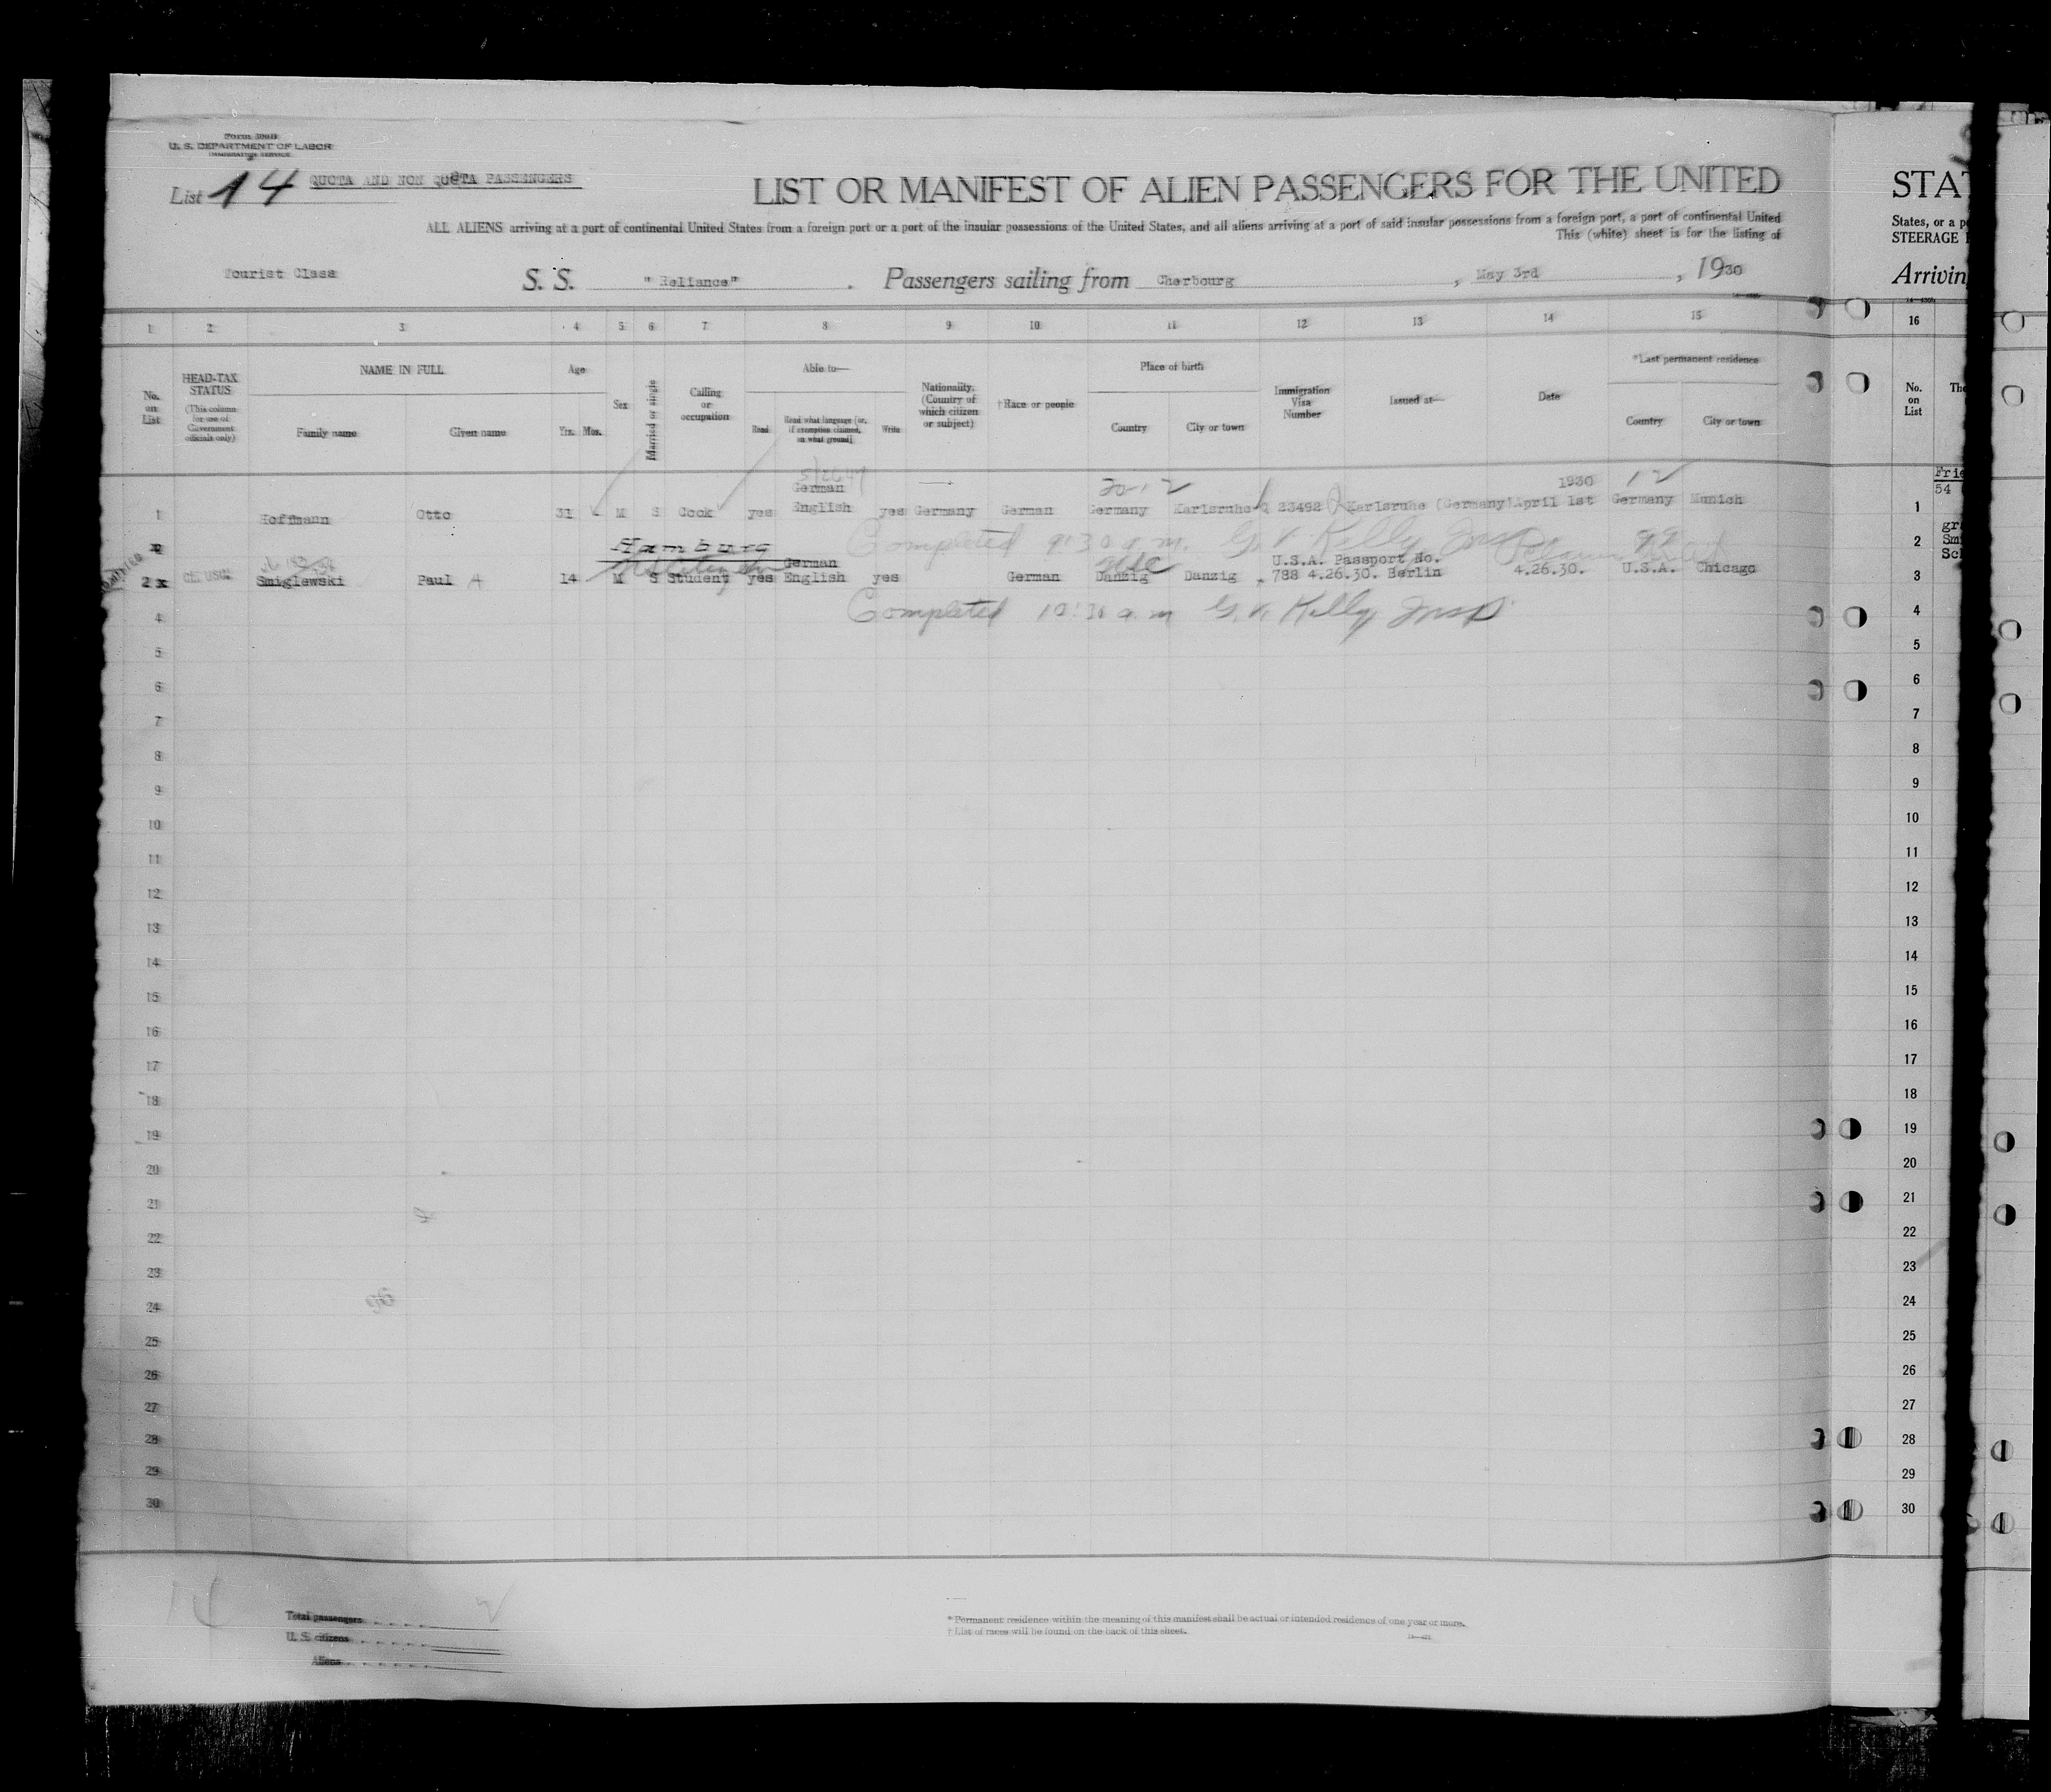 Form 500 B
U. S. DEPARTMENT OF LABOR
IMMIGRATION SERVICE
List 14 QUOTA AND NON QUOTA PASSENGERS
LIST OR MANIFEST OF ALIEN PASSENGERS FOR THE UNITED
ALL ALIENS arriving at a port of continental United States from a foreign port or a port of the insular possessions of the United States, and all aliens arriving at a port of said insular possessions from a foreign port, a port of continental United
This (white) sheet is for the listing of
Tourist Class S. S. "Reliance". Passengers sailing from Cherbourg, May 3rd, 1930
STA
States, or a p
STEERAGE
Arrivin
1 2 3 4 5 6 7 8 9 10 11 12 13 14 15 16
No. on List
HEAD-TAX STATUS
(This column for use of Government officials only)
NAME IN FULL
Family name Given name
Age
Yrs. Mos.
Sex
Married or single
Calling or occupation
Able to—
Read Read what language [or, if exemption claimed, on what ground] Write
Nationality. (Country of which citizen or subject)
†Race or people
Place of birth
Country City or town
Immigration Visa Number
Issued at—
Date
*Last permanent residence
Country City or town
No. on List
The
German 20-12 1930 12
1 Hoffmann Otto 31 M S Cook yes English yes Germany German Germany Karlsruhe Q 23492 Karlsruhe (Germany) April 1st Germany Munich 1
Frie
54
Completed 9:30 a.m. G. V. Kelly Insp
Hamburg
2
German USC U.S.A. Passport No.
2 x Smiglewski Paul A 14 M S Student yes English yes German Danzig Danzig 788 4.26.30. Berlin 4.26.30. U.S.A. Chicago 3
gr
Smi
Sch
4 Completed 10:30 a.m G. V. Kelly Insp 4
5 5
6 6
7 7
8 8
9 9
10 10
11 11
12 12
13 13
14 14
15 15
16 16
17 17
18 18
19 19
20 20
21 21
22 22
23 23
24 24
25 25
26 26
27 27
28 28
29 29
30 30
14
Total passengers
U. S. citizens
Aliens
* Permanent residence within the meaning of this manifest shall be actual or intended residence of one year or more.
† List of races will be found on the back of this sheet.